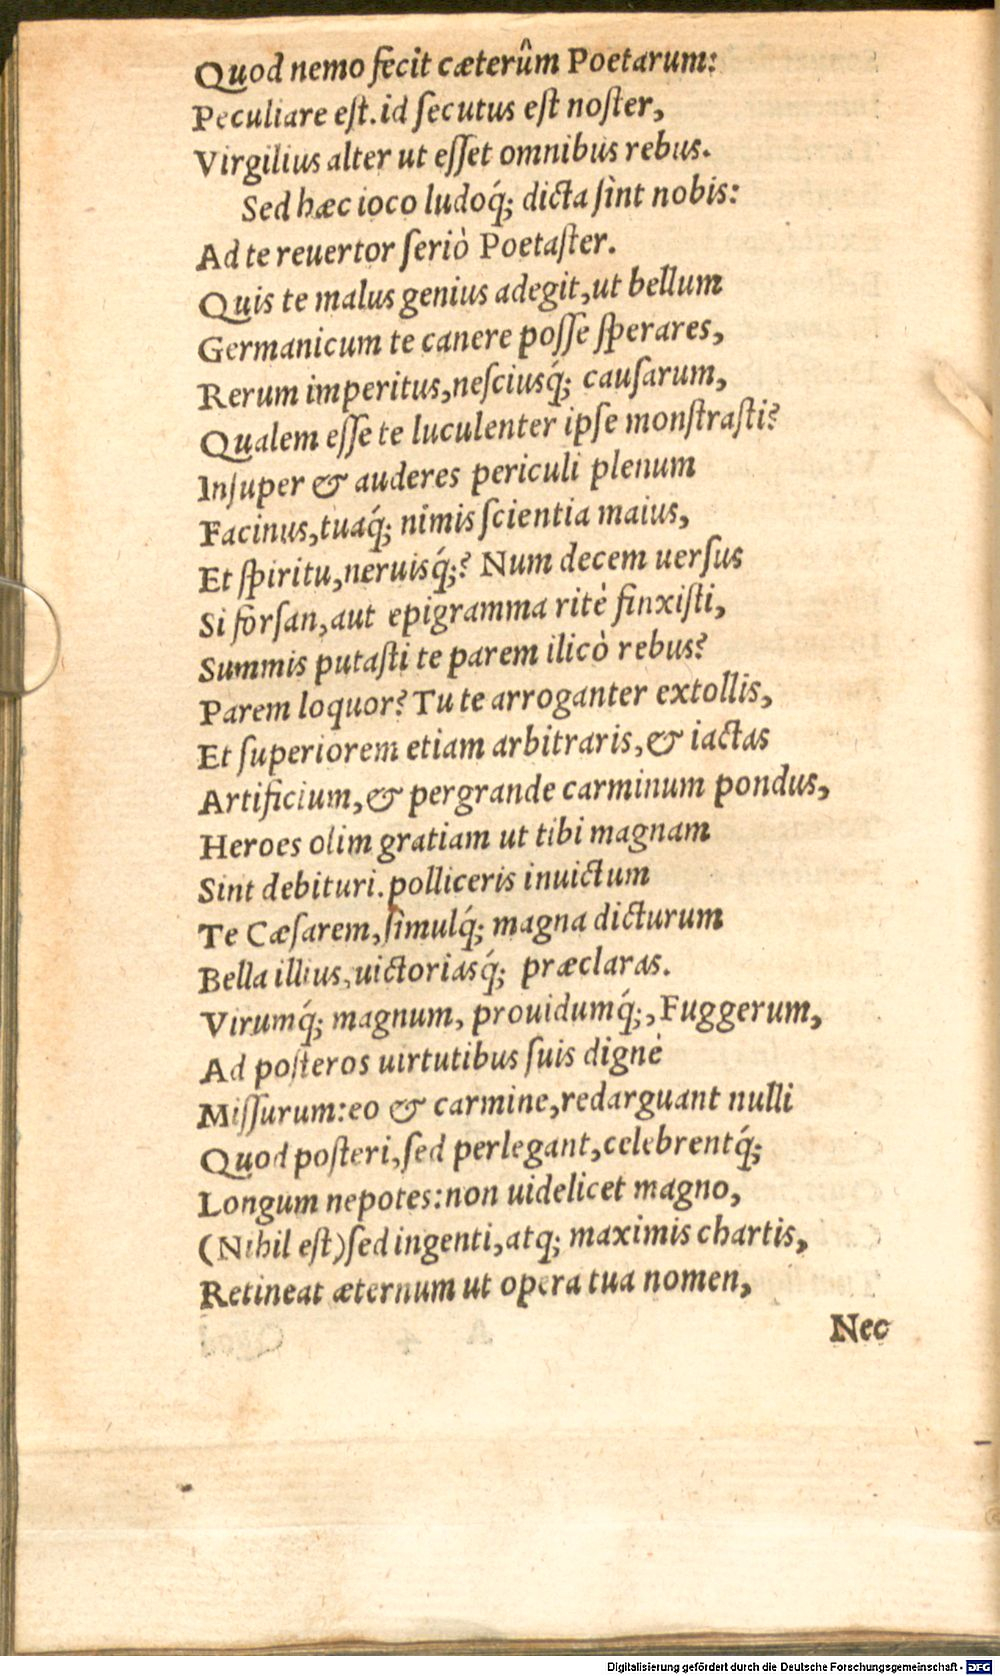 Quod nemo fecit cæterûm Poetarum:
Peculiare eſt. id ſecutus eſt noſter,
Virgilius alter ut eſſet omnibus rebus.
Sed hæc ioco ludoq́; dicta ſint nobis:
Ad te reuertor ſeriò Poetaſter.
Quis te malus genius adegit, ut bellum
Germanicum te canere poſſe ſperares,
Rerum imperitus, neſciusq́; cauſarum,
Qualem eſſe te luculenter ipſe monſtraſti?
Inſuper & auderes periculi plenum
Facinus, tuaq́; nimis ſcientia maius,
Et ſpiritu, neruisq́;? Num decem uerſus
Si forſan, aut epigramma ritè finxiſti,
Summis putaſti te parem ilicò rebus?
Parem loquor? Tu te arroganter extollis,
Et ſuperiorem etiam arbitraris, & iactas
Artificium, & pergrande carminum pondus,
Heroes olim gratiam ut tibi magnam
Sint debituri. polliceris inuictum
Te Cæſarem, ſimulq́; magna dicturum
Bella illius, uictoriasq́; præclaras.
Virumq́; magnum, prouidumq́;, Fuggerum,
Ad poſteros uirtutibus ſuis dignè
Miſſurum: eo & carmine, redarguant nulli
Quod poſteri, ſed perlegant, celebrentq́;
Longum nepotes: non uidelicet magno,
(Nihil eſt) ſed ingenti, atq; maximis chartis,
Retineat æternum ut opera tua nomen,
Nec
Digitalisierung gefördert durch die Deutsche Forschungsgemeinschaft - DFG